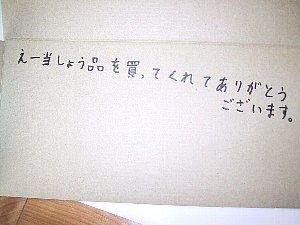 え一当しょう品を買ってくれてありがとう
ございます。